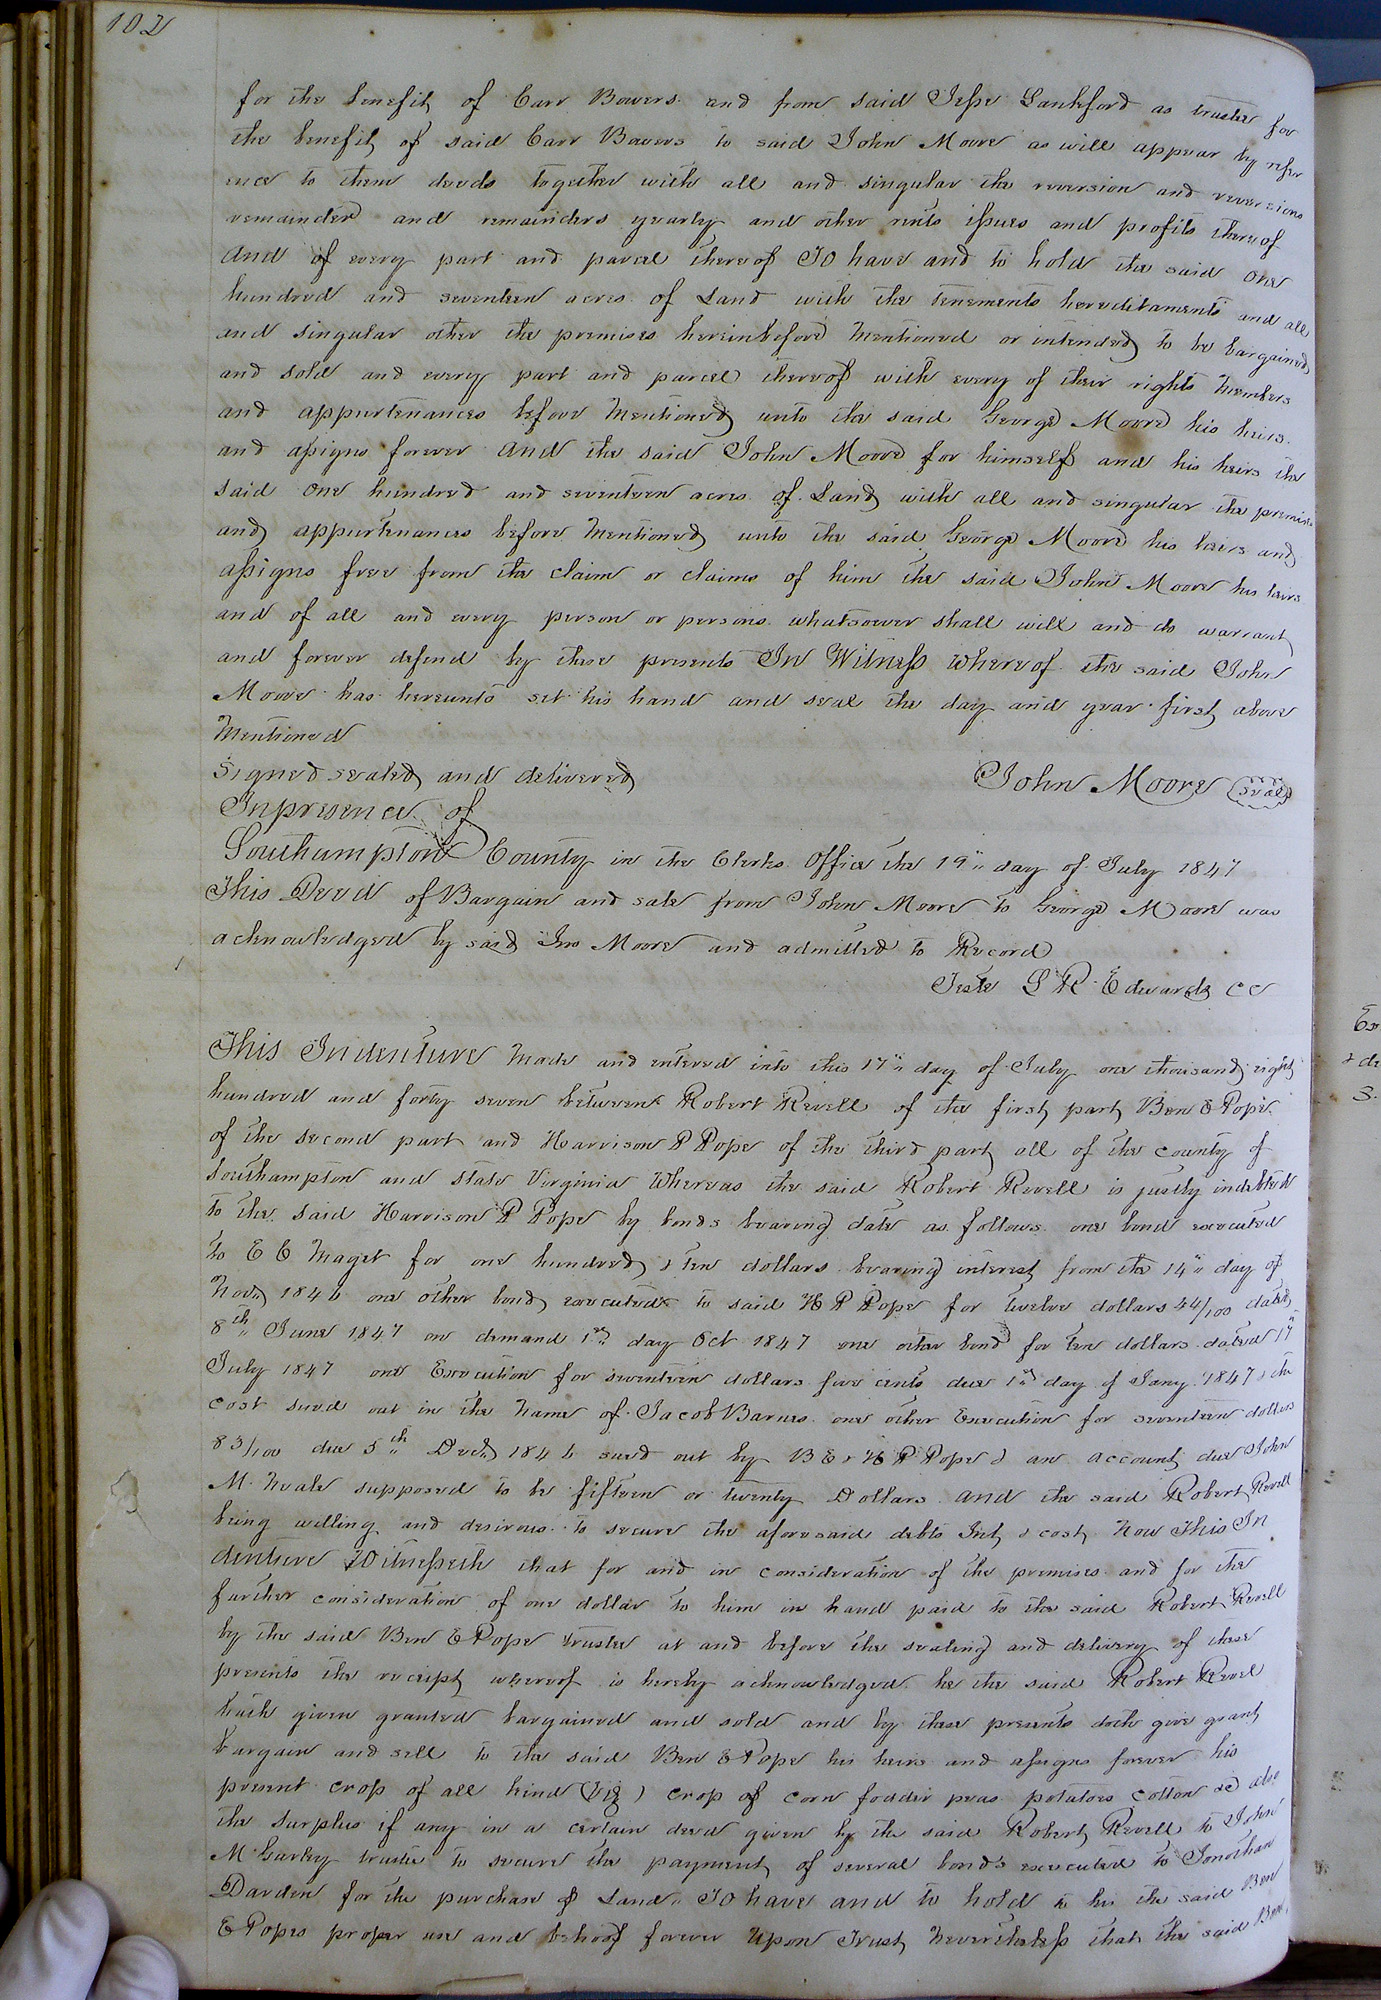 102
for the benefit of Carr Bowers and from said Jesse Lankford as trustee for
the benefit of said Carr Bowers to said John Moore as will appear by refer
ence to them deeds together with all and singular the reversion and reversions
remainder and remainders yearly and other rents issues and profits thereof
And of every part and parcel thereof To have and to hold the said one
hundred and seventeen acres of Land with the tenements hereditaments and all
and singular other the premises hereinbefore Mentioned or intended to be bargained
and sold and every part and parcel thereof with every of their rights Members
and appurtenances before Mentioned unto the said George Moore his heirs
and assigns forever And the said John Moore for himself and his heirs the
said one hundred and seventeen acres of Land with all and singular the premises
and appurtenances before Mentioned unto the said George Moore his heirs and
assigns free from the claim or claims of him the said John Moore his heirs
and of all and every person or persons whatsoever shall will and do warrant
and forever defend by these presents In Witness Whereof the said John
Moore has hereunto set his hand and seal the day and year first above
Mentioned
Signed sealed and delivered John Moore (Seal)
In presence of
Southampton County in the Clerks Office the 19" day of July 1847
This Deed of Bargain and sale from John Moore to George Moore was
acknowledged by said Jno Moore and admitted to Record
Teste L R Edwards CC
This Indenture Made and entered into this 17" day of July one thousand eight
hundred and forty seven between Robert Revell of the first part Ben E Pope
of the second part and Harrison P Pope of the third part all of the county of
Southampton and state Virginia Whereas the said Robert Revell is justly indebted
to the said Harrison P Pope by bonds bearing date as follows one bond executed
to E C Maget for one hundred & ten dollars bearing interest from the 14" day of
Novr 1846 one other bond executed to said H P Pope for twelve dollars 44/100 dated
8th June 1847 on demand 1st day Oct 1847 one other bond for ten dollars dated 17"
July 1847 one Execution for seventeen dollars five cents due 1st day of Jany 1847 & the
cost sued out in the Name of Jacob Barnes one other Execution for seventeen dollars
83/100 due 5th Decr 1846 sued out by B E & H P Pope & an account due John
M. Neale supposed to be fifteen or twenty Dollars And the said Robert Revell
being willing and desirous to secure the aforesaid debts Int & cost Now This In
denture Witnesseth that for and in consideration of the premises and for the
further consideration of one dollar to him in hand paid to the said Robert Revell
by the said Ben E Pope trustee at and before the sealing and delivery of these
presents the receipt whereof is hereby acknowledged he the said Robert Revel
hath given granted bargained and sold and by these presents doth give grant
bargain and sell to the said Ben E Pope his heirs and assigns forever his
present crop of all kind (Viz) crop of corn fodder peas potatoes cotton &c also
the surplus if any in a certain deed given by the said Robert Revell to John
M Gurley trustee to secure the payment of several bonds executed to Jonathan
Darden for the purchase of Land To have and to hold to his the said Ben
E Popes proper use and behoof forever Upon Trust Nevertheless that the said Ben